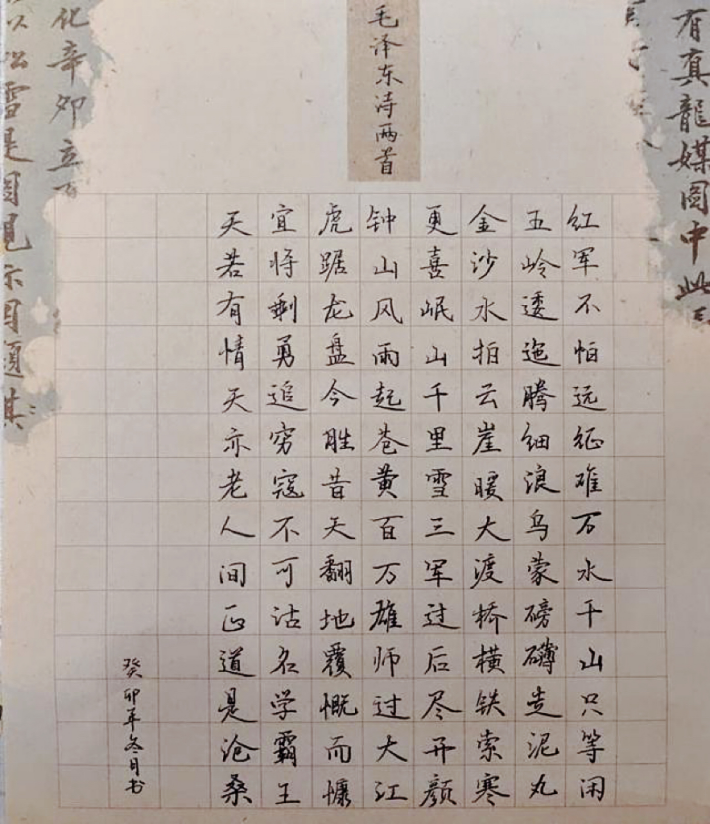 毛泽东诗两首
红军不怕远征难万水千山只等闲
五岭逶迤腾细浪乌蒙磅礴走泥丸
金沙水拍云崖暖大渡桥横铁索寒
更喜岷山千里雪三军过后尽开颜
钟山风雨起苍黄百万雄师过大江
虎踞龙盘今胜昔天翻地覆慨而慷
宜将剩勇追穷寇不可沽名学霸王
天若有情天亦老人间正道是沧桑
癸卯年冬月书
有真龍媒图中此
化辛卯立
以公雪是图见示因题其